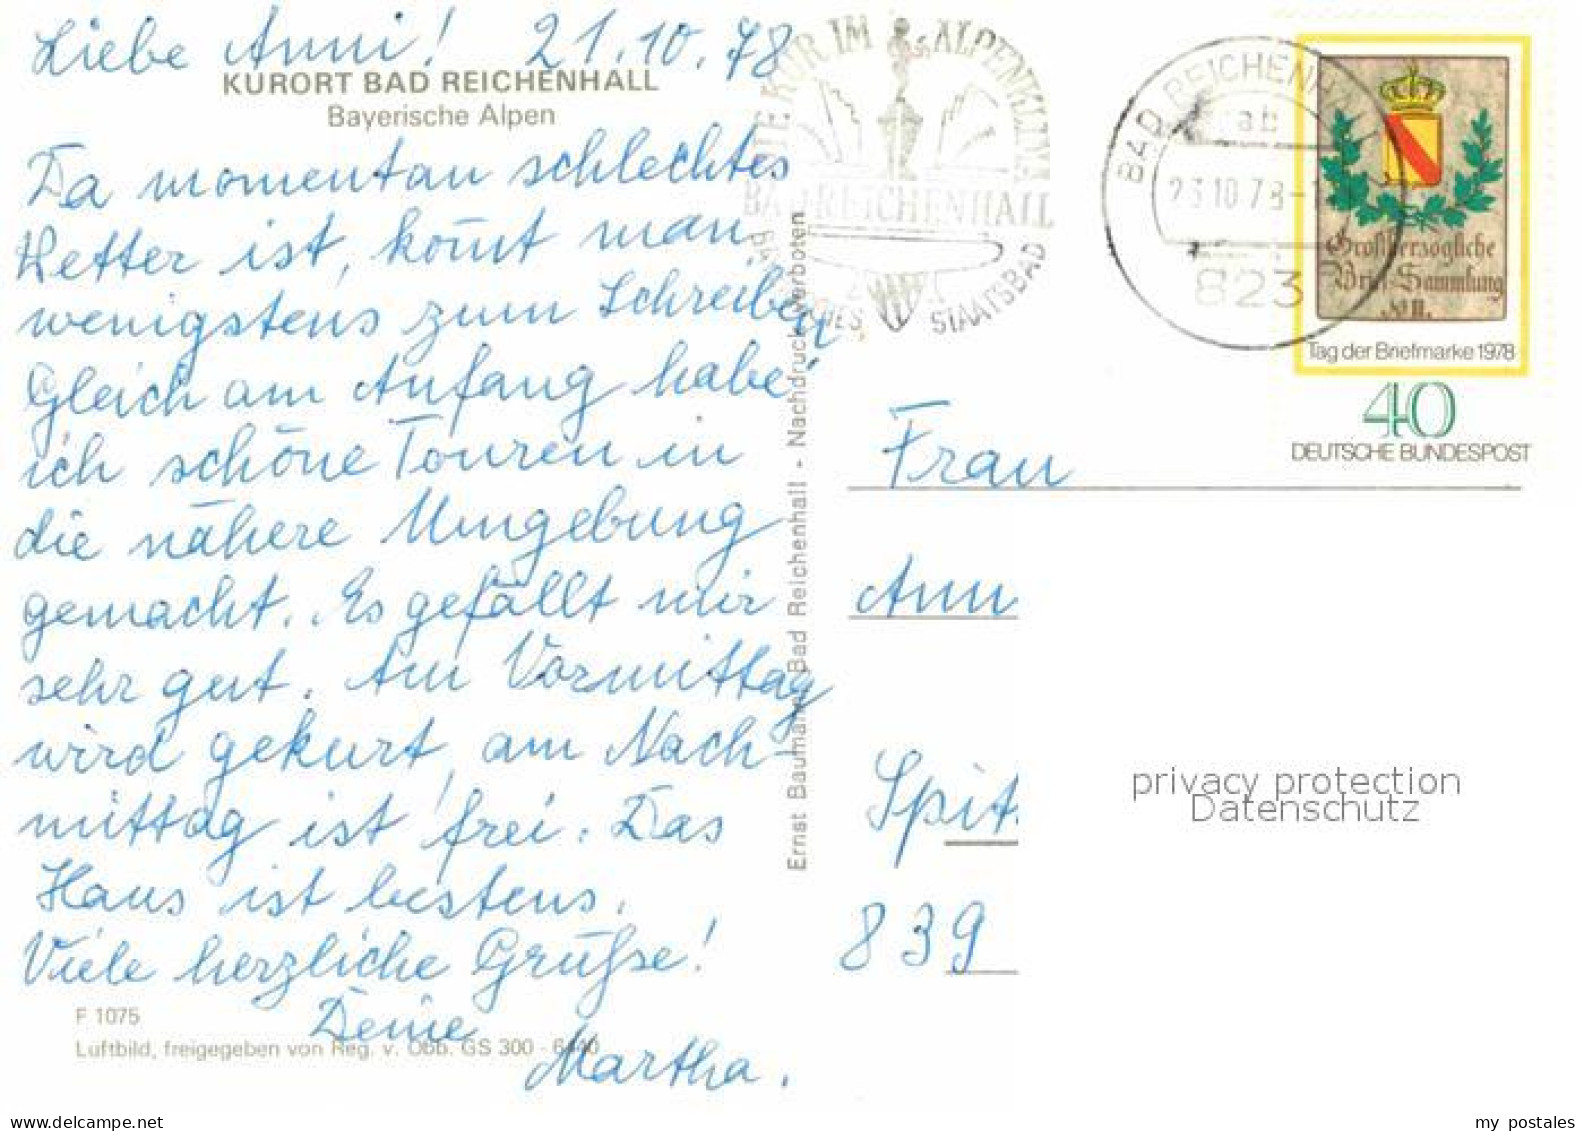 Liebe Anni! 21.10.78
KURORT BAD REICHENHALL
Bayerische Alpen
Da momentan schlechtes
Wetter ist, kom̄t man
wenigstens zum Schreiben
Gleich am Anfang habe
ich schöne Touren in
die nähere Umgebung
gemacht. Es gefällt mir
sehr gut. Am Vormittag
wird gekurt, am Nach-
mittag ist frei. Das
Haus ist bestens.
Viele herzliche Grüße!
Deine
Martha.
F 1075
Luftbild, freigegeben von Reg. v. Obb. GS 300 - 6440
Ernst Baumann Bad Reichenhall - Nachdruck verboten
DIE KUR IM ALPENKLIMA
BAD REICHENHALL
STAATSBAD
BAD REICHENHALL
ab
23.10.78
823
Großherzogliche
Brief-Sammlung
No II.
Tag der Briefmarke 1978
40
DEUTSCHE BUNDESPOST
Frau
Ann
Spit
839
privacy protection
Datenschutz
my postales